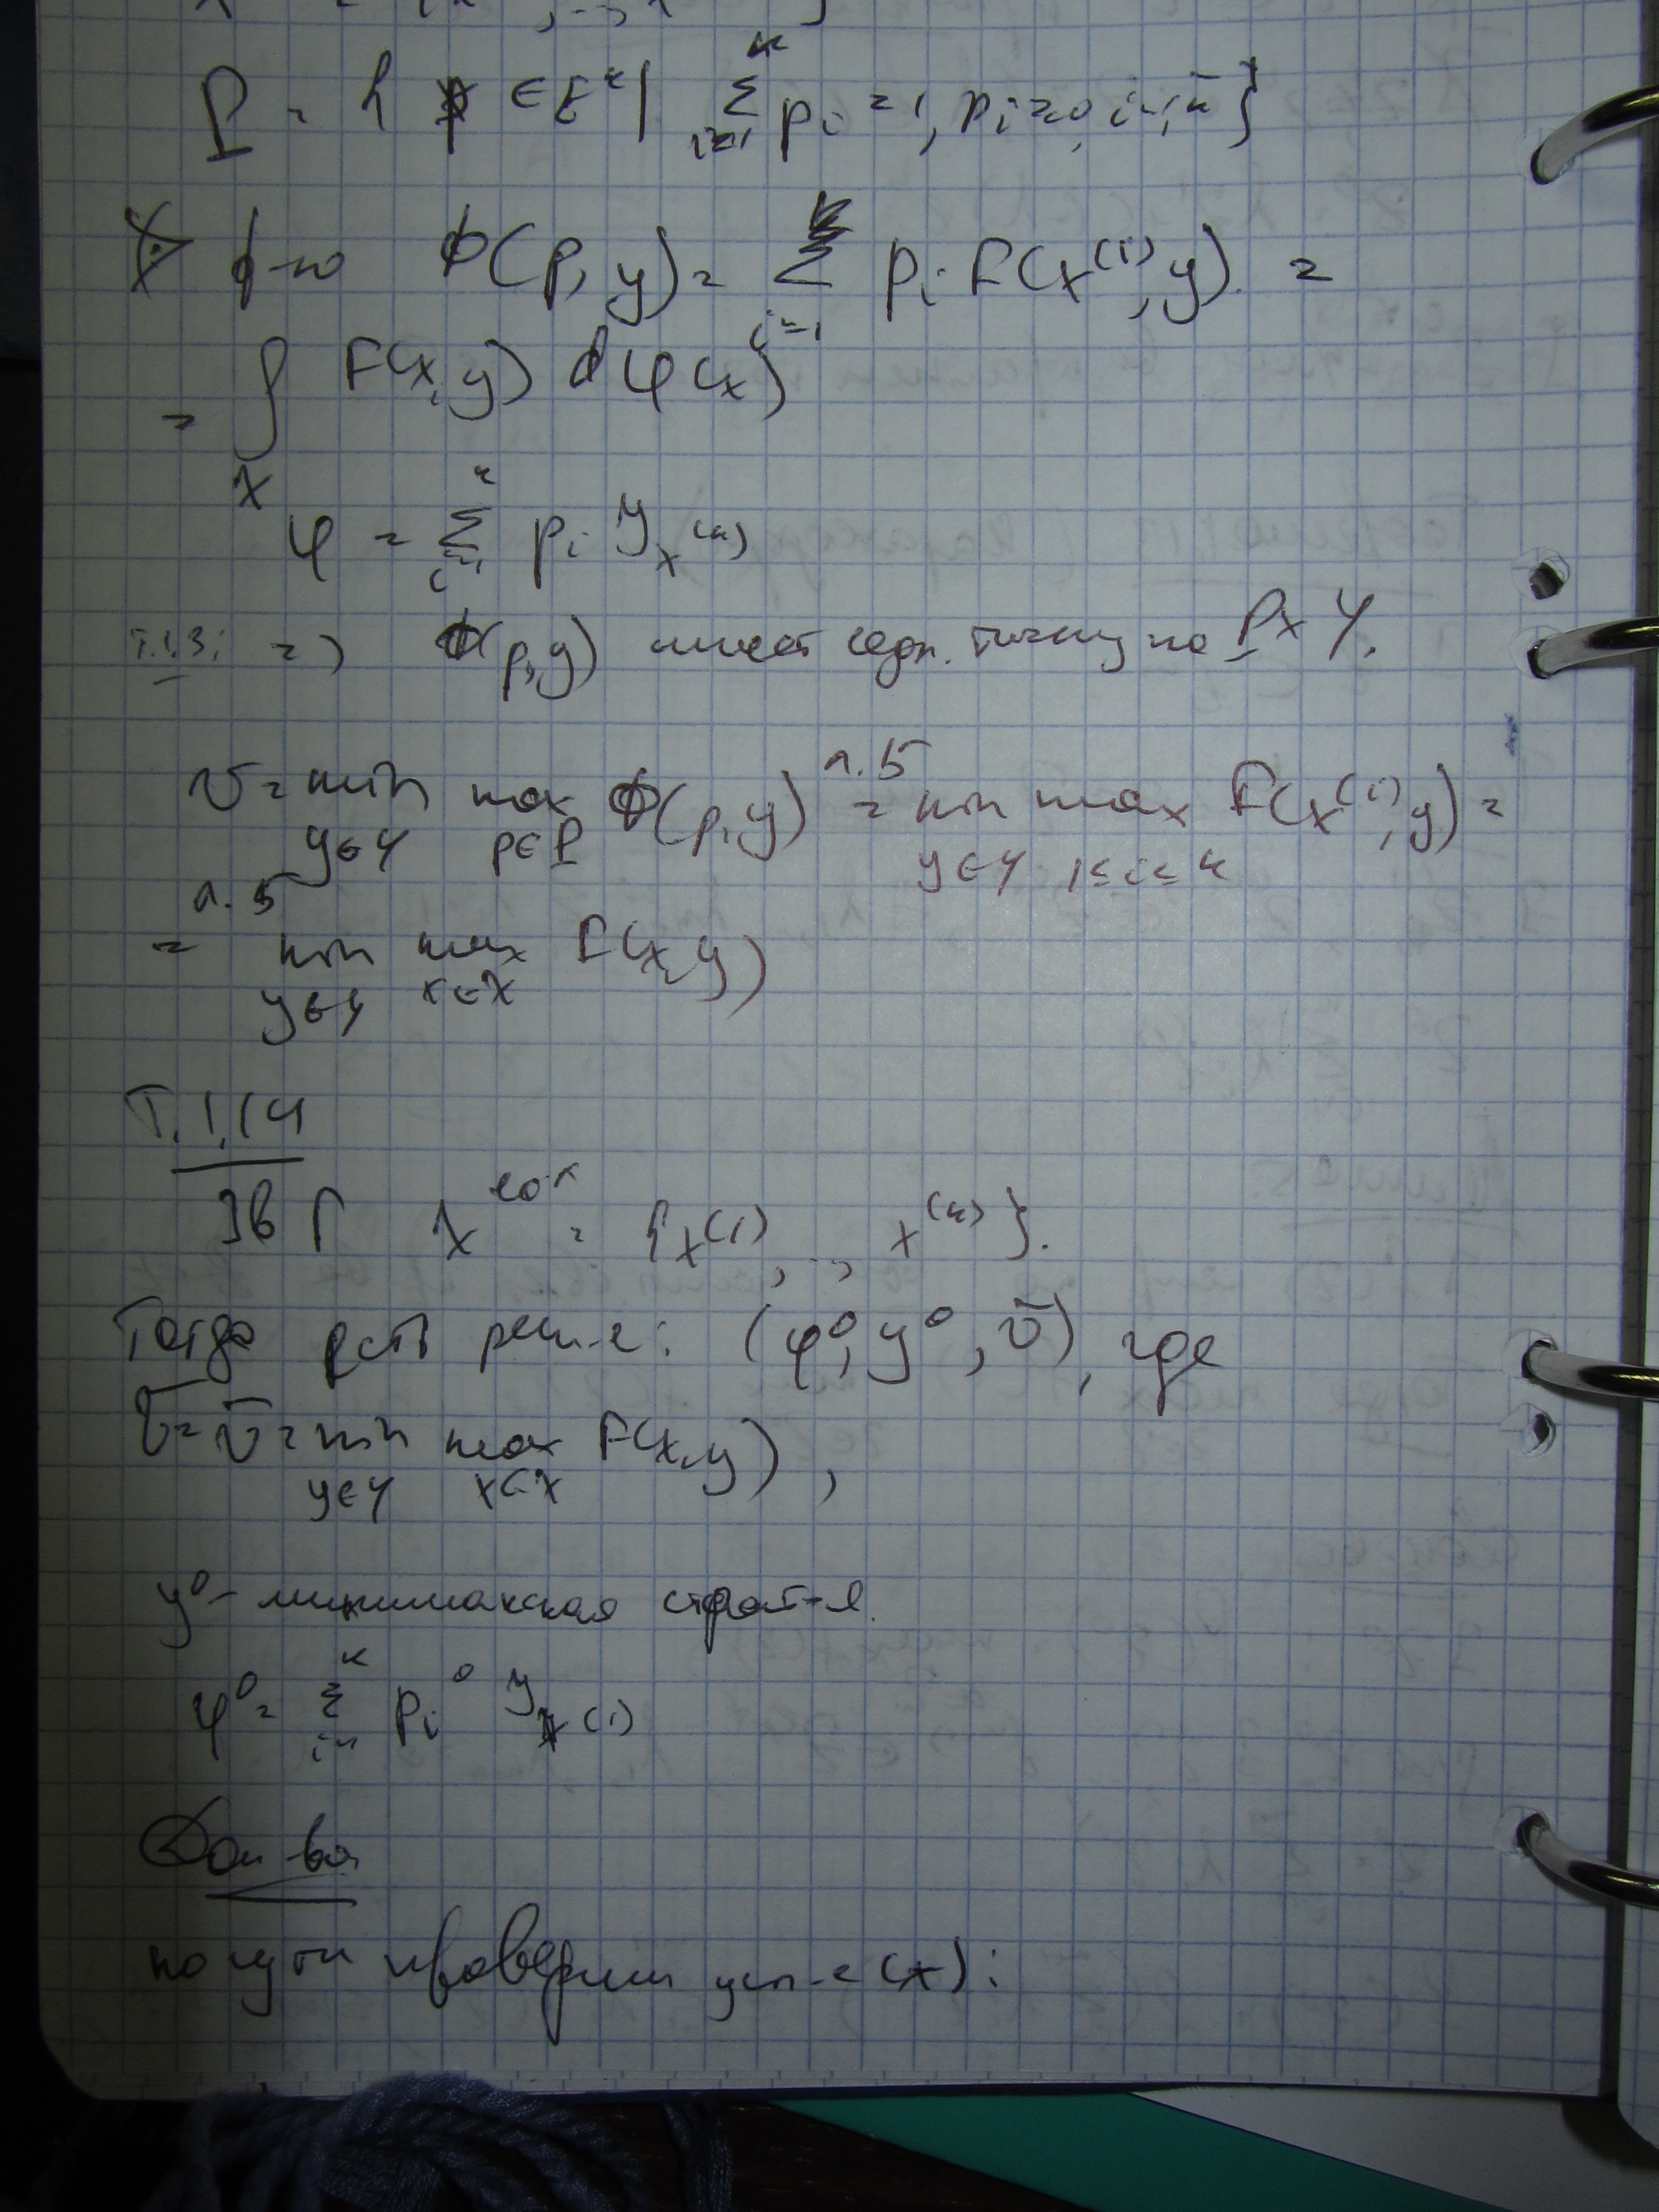 P = { p ∈ E^k | Σ_{i=1}^{k} p_i = 1, p_i ≥ 0, i = 1,k }
ф-ю Φ(p, y) = Σ_{i=1} p_i F(x^{(i)}, y) =
= ∫_X F(x, y) dφ(x)
φ = Σ_{i=1}^{k} p_i Y_{x^{(k)}}
Т.1.3: => Φ(p, y) имеет седл. точку на P × Y.
v = min_{y∈Y} max_{p∈P} Φ(p, y) =^{л.5} min_{y∈Y} max_{1≤i≤k} F(x^{(i)}, y) =
=^{л.5} min_{y∈Y} max_{x∈X} F(x, y)
Т. 1.14
Зв Г X = {x^{(1)}, .., x^{(k)}}.
Тогда есть реш-е: (φ^0, y^0, v̄), где
v̄ = v̄ = min_{y∈Y} max_{x∈X} F(x, y),
y^0 - минимаксная страт-я.
φ^0 = Σ_{i=1}^{k} p_i^0 Y_{x^{(i)}}
Док-во
проверим усл-е (*):